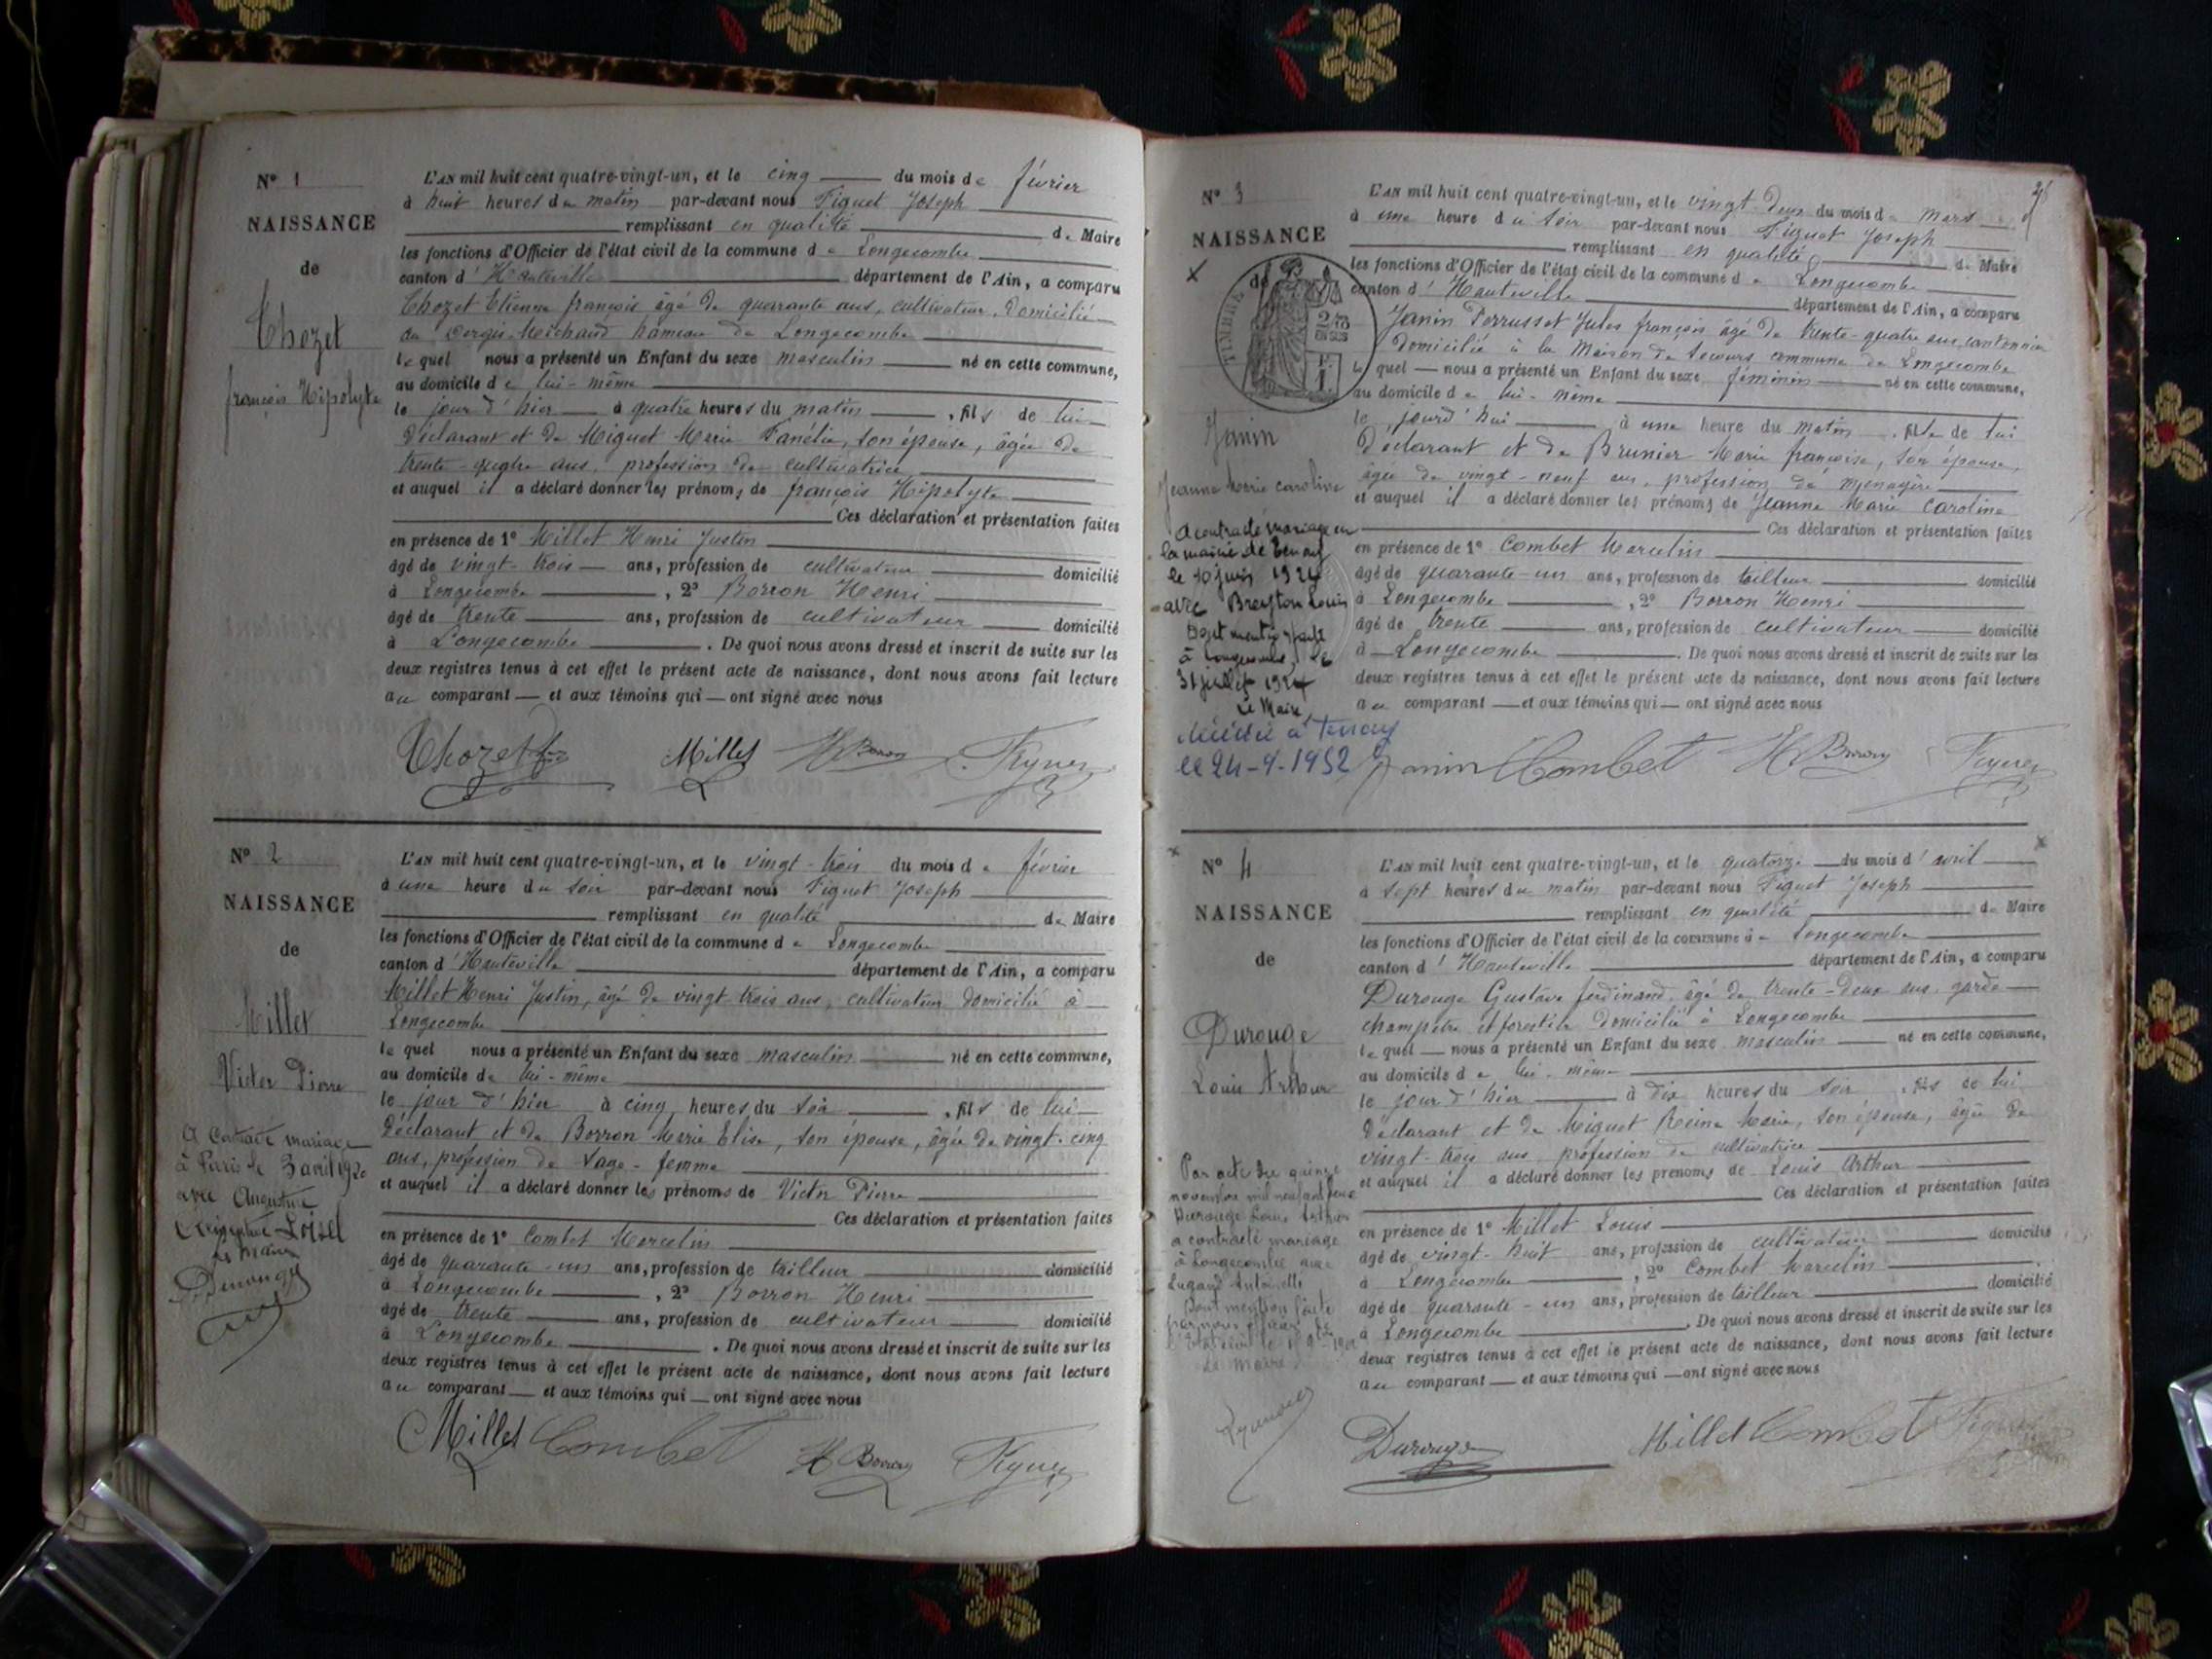 N° 1
NAISSANCE
de
Chozet
françois Hipolyte
L'AN mil huit cent quatre-vingt-un, et le cinq du mois de février
à huit heures du matin par-devant nous Figuet Joseph
remplissant en qualité de Maire
les fonctions d'Officier de l'état civil de la commune de Longecombe
canton d'Hauteville département de l'Ain, a comparu
Chozet Etienne françois âgé de quarante ans, cultivateur, domicilié
au Michaud hameau de Longecombe
lequel nous a présenté un Enfant du sexe masculin né en cette commune,
au domicile de lui-même
le jour d'hier à quatre heures du matin, fils de lui
déclarant et de Miguet Marie Fanélie, son épouse, âgée de
trente-quatre ans, profession de cultivatrice
et auquel il a déclaré donner les prénoms de françois Hipolyte
Ces déclaration et présentation faites
en présence de 1° Millet Henri Justin
âgé de vingt-trois ans, profession de cultivateur domicilié
à Longecombe, 2° Borron Henri
âgé de trente ans, profession de cultivateur domicilié
à Longecombe. De quoi nous avons dressé et inscrit de suite sur les
deux registres tenus à cet effet le présent acte de naissance, dont nous avons fait lecture
au comparant et aux témoins qui ont signé avec nous
Chozet Millet H Borron
N° 2
NAISSANCE
de
Millet
Victor Pierre
A Contracté mariage
à Paris le 3 avril 1920
avec Augustine
Loisel
Le Maire
Durouge
L'AN mil huit cent quatre-vingt-un, et le vingt-trois du mois de février
à une heure du soir par-devant nous Figuet Joseph
remplissant en qualité de Maire
les fonctions d'Officier de l'état civil de la commune de Longecombe
canton d'Hauteville département de l'Ain, a comparu
Millet Henri Justin, âgé de vingt trois ans, cultivateur domicilié à
Longecombe
lequel nous a présenté un Enfant du sexe masculin né en cette commune,
au domicile de lui-même
le jour d'hier à cinq heures du soir, fils de lui
déclarant et de Borron Marie Elise, son épouse, âgée de vingt-cinq
ans, profession de sage-femme
et auquel il a déclaré donner les prénoms de Victor Pierre
Ces déclaration et présentation faites
en présence de 1° Combet Marcelin
âgé de quarante-un ans, profession de tailleur domicilié
à Longecombe, 2° Borron Henri
âgé de trente ans, profession de cultivateur domicilié
à Longecombe. De quoi nous avons dressé et inscrit de suite sur les
deux registres tenus à cet effet le présent acte de naissance, dont nous avons fait lecture
au comparant et aux témoins qui ont signé avec nous
Millet Combet H Borron
N° 3
NAISSANCE
de
TIMBRE
Janin
Jeanne Marie Caroline
A contracté mariage en
la mairie de Tenay
le 10 juin 1924
avec Louis
à Longecombe, le
31 juillet 1924
Le Maire
Décédée à Tenay
le 24-4-1952
L'AN mil huit cent quatre-vingt-un, et le vingt-deux du mois de mars
à une heure du soir par-devant nous Figuet Joseph
remplissant en qualité de Maire
les fonctions d'Officier de l'état civil de la commune de Longecombe
canton d'Hauteville département de l'Ain, a comparu
Janin Perrusset Jules françois âgé de trente-quatre ans, cantonnier
domicilié à la Maison de Secours commune de Longecombe
lequel nous a présenté un Enfant du sexe féminin né en cette commune,
au domicile de lui-même
le jourd'hui à une heure du matin, fille de lui
déclarant et de Brunier Marie françoise, son épouse,
âgée de vingt-neuf ans, profession de ménagère
et auquel il a déclaré donner les prénoms de Jeanne Marie Caroline
Ces déclaration et présentation faites
en présence de 1° Combet Marcelin
âgé de quarante-un ans, profession de tailleur domicilié
à Longecombe, 2° Borron Henri
âgé de trente ans, profession de cultivateur domicilié
à Longecombe. De quoi nous avons dressé et inscrit de suite sur les
deux registres tenus à cet effet le présent acte de naissance, dont nous avons fait lecture
au comparant et aux témoins qui ont signé avec nous
Janin Combet H Borron
N° 4
NAISSANCE
de
Durouge
Louis Arthur
Par acte du quinze
novembre mil neuf cent
Durouge Louis Arthur
a contracté mariage
à Longecombe avec
Lugand Antoinette
Dont mention faite
par nous
Le Maire
L'AN mil huit cent quatre-vingt-un, et le quatorze du mois d'avril
à sept heures du matin par-devant nous Figuet Joseph
remplissant en qualité de Maire
les fonctions d'Officier de l'état civil de la commune de Longecombe
canton d'Hauteville département de l'Ain, a comparu
Durouge Gustave ferdinand, âgé de trente-deux ans, garde
champêtre et forestier domicilié à Longecombe
lequel nous a présenté un Enfant du sexe masculin né en cette commune,
au domicile de lui-même
le jour d'hier à dix heures du soir, fils de lui
déclarant et de Miguet Reine Marie, son épouse, âgée de
vingt-trois ans profession de cultivatrice
et auquel il a déclaré donner les prénoms de Louis Arthur
Ces déclaration et présentation faites
en présence de 1° Millet Louis
âgé de vingt-huit ans, profession de cultivateur domicilié
à Longecombe, 2° Combet Marcelin
âgé de quarante-un ans, profession de tailleur domicilié
à Longecombe. De quoi nous avons dressé et inscrit de suite sur les
deux registres tenus à cet effet le présent acte de naissance, dont nous avons fait lecture
au comparant et aux témoins qui ont signé avec nous
Durouge Millet Combet